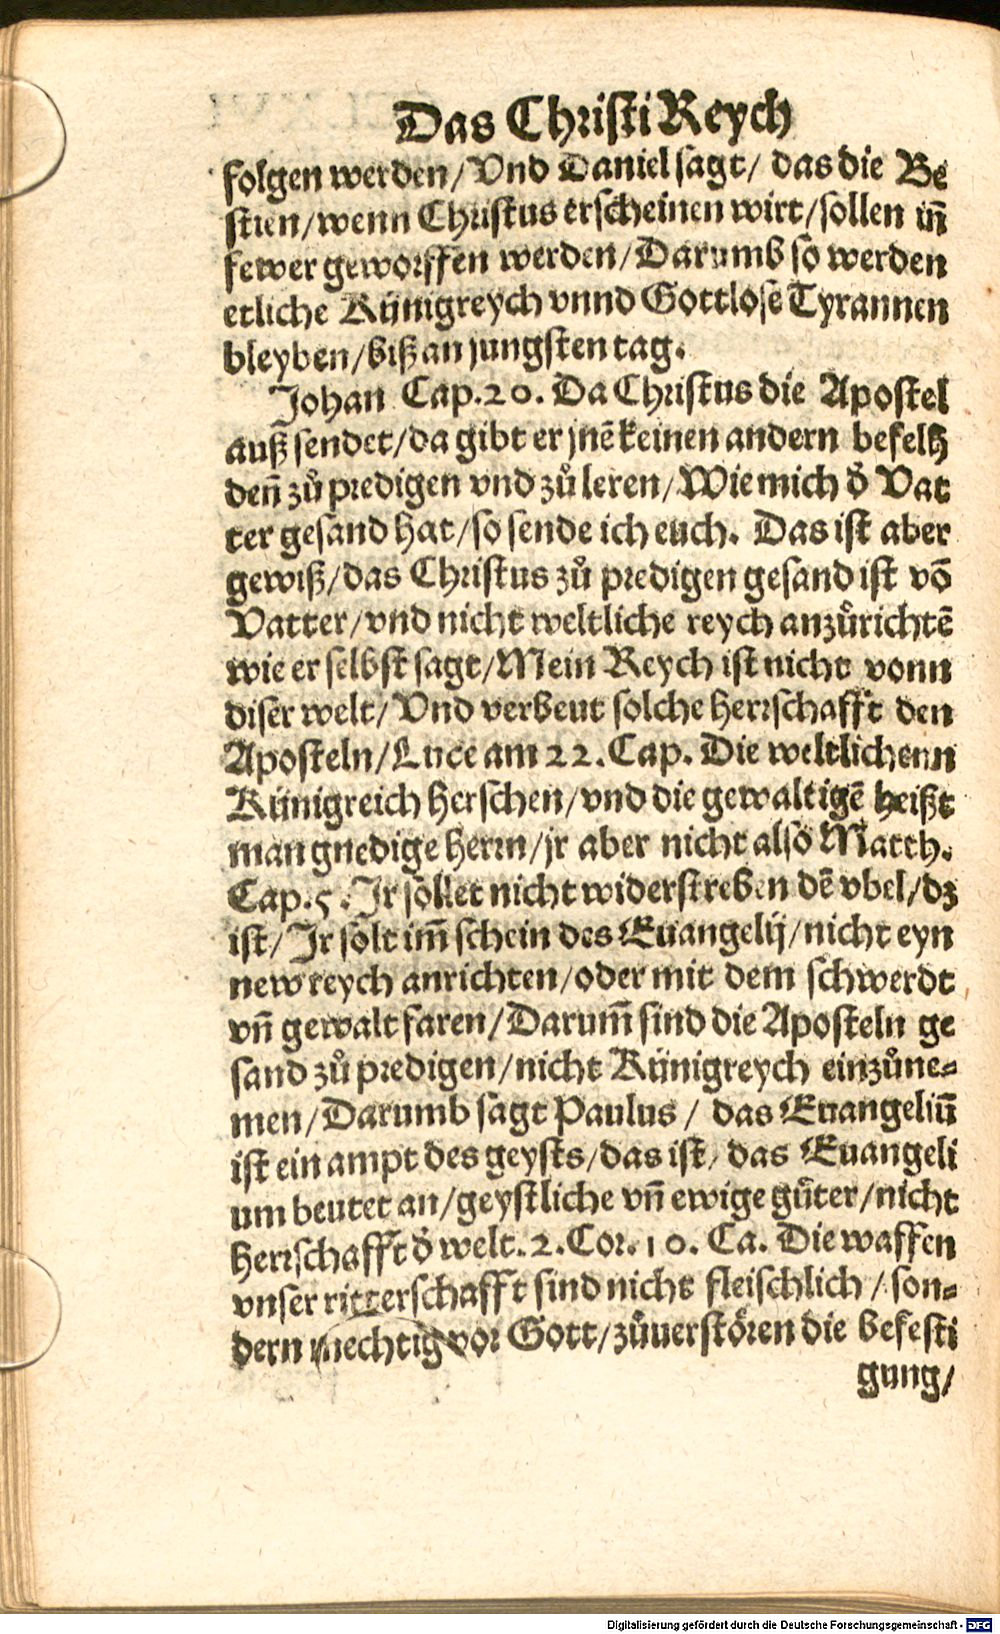 Das Christi Reych
folgen werden/ Vnd Daniel sagt/ das die Be
stien/ wenn Christus erscheinen wirt/ sollen in̄
fewer geworffen werden/ Darumb so werden
etliche Künigreych vnnd Gottlose Tyrannen
bleyben/ biß an jungsten tag.
Johan Cap. 20. Da Christus die Apostel
auß sendet/ da gibt er jnē keinen andern befelh
den̄ zů predigen vnd zů leren/ Wie mich d̕ Vat
ter gesand hat/ so sende ich euch. Das ist aber
gewiß/ das Christus zů predigen gesand ist vō
Vatter/ vnd nicht weltliche reych anzůrichtē
wie er selbst sagt/ Mein Reych ist nicht vonn
diser welt/ Vnd verbeut solche herrschafft den
Aposteln/ Luce am 22. Cap. Die weltlichenn
Künigreich herschen/ vnd die gewaltigē heißt
man gnedige herrn/ jr aber nicht also Matth.
Cap. 5. Jr sollet nicht widerstreben dē vbel/ dz
ist/ Jr solt im̄ schein des Euangelij/ nicht eyn
new reych anrichten/ oder mit dem schwerdt
vn̄ gewalt faren/ Darum̄ sind die Aposteln ge
sand zů predigen/ nicht Künigreych einzůne-
men/ Darumb sagt Paulus/ das Euangeliū
ist ein ampt des geysts/ das ist/ das Euangeli
um beutet an/ geystliche vn̄ ewige gůter/ nicht
herrschafft d̕ welt. 2. Cor. 10. Ca. Die waffen
vnser ritterschafft sind nicht fleischlich/ son-
dern mechtig vor Gott/ zůuerstören die befesti
gung/
Digitalisierung gefördert durch die Deutsche Forschungsgemeinschaft - DFG